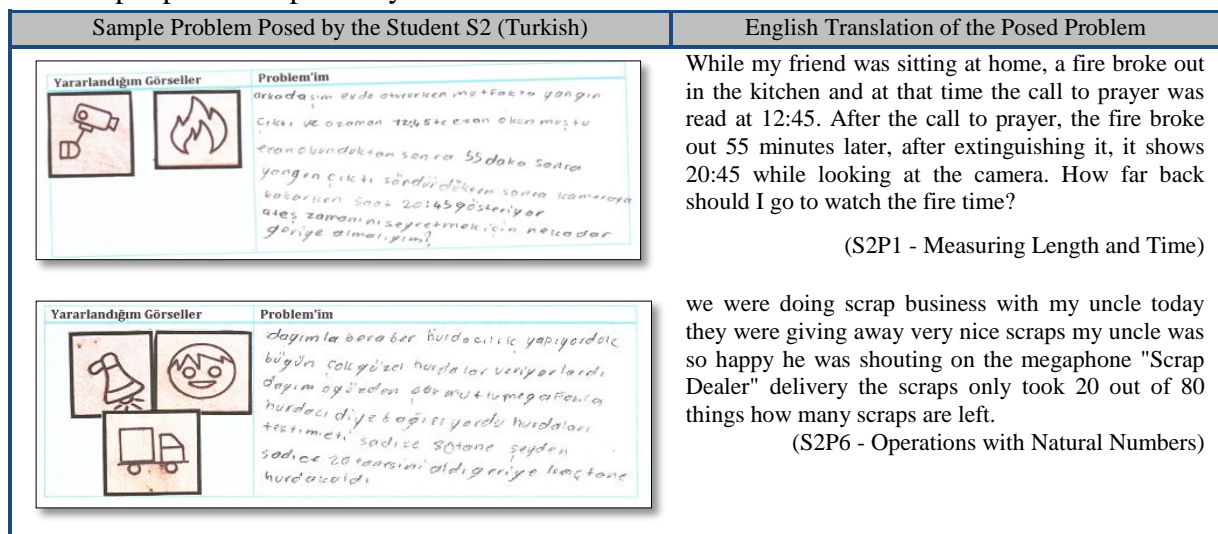 Sample Problem Posed by the Student S2 (Turkish)
English Translation of the Posed Problem
Yararlandığım Görseller
Problem'im
arkadaşım evde otururken mutfakta yangın
çıktı ve ozaman 12:45te ezan okunmuştu
ezan okunduktan sonra 55 daka sonra
yangın çıktı söndürdükten sonra kameraya
bakarken saat 20:45 gösteriyor
ateş zamanını seyretmek için nekadar
geriye almalıyım?
While my friend was sitting at home, a fire broke out
in the kitchen and at that time the call to prayer was
read at 12:45. After the call to prayer, the fire broke
out 55 minutes later, after extinguishing it, it shows
20:45 while looking at the camera. How far back
should I go to watch the fire time?
(S2P1 - Measuring Length and Time)
Yararlandığım Görseller
Problem'im
dayımla beraber hurdacılık yapıyorduk
bugün çok güzel hurdalar veriyorlardı
dayım megafonla
hurdacı diye bağırıyordu hurdaları
testimeti sadice 80tane şeyden
sadice 20 tanesini aldı geriye kaç tane
hurda kaldı
we were doing scrap business with my uncle today
they were giving away very nice scraps my uncle was
so happy he was shouting on the megaphone "Scrap
Dealer" delivery the scraps only took 20 out of 80
things how many scraps are left.
(S2P6 - Operations with Natural Numbers)